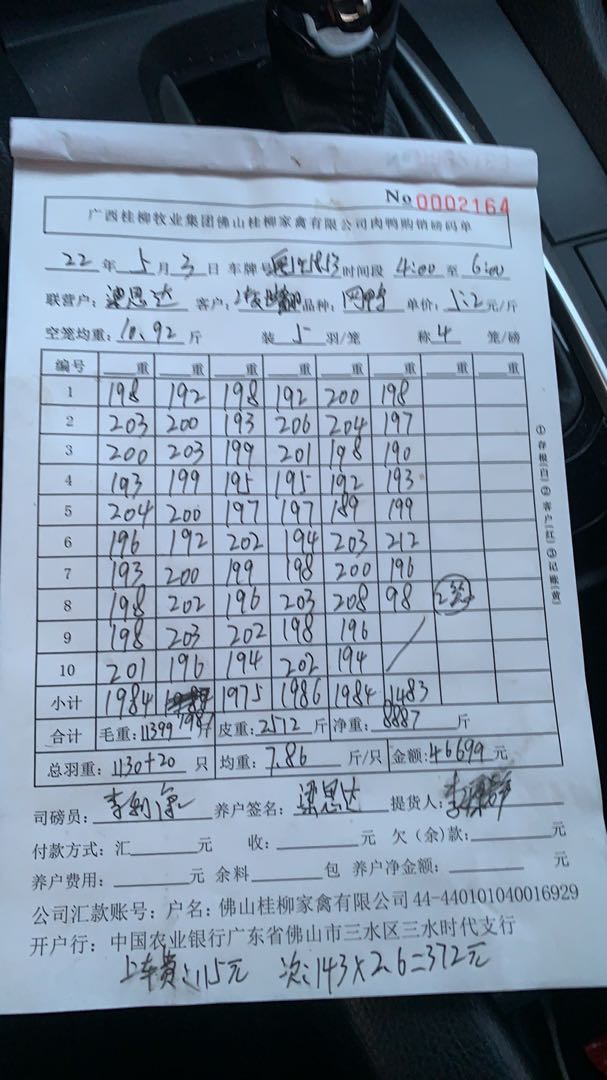 No 0002164
广西桂柳牧业集团佛山桂柳家禽有限公司肉鸭购销磅码单
22年5月3日 车牌号 时间段 4:00 至 6:00
联营户:梁思达 客户: 品种: 单价:5.2元/斤
空笼均重:10.92斤 装5羽/笼 称4笼/磅
编号 重 重 重 重 重 重 重 重
1 198 192 198 192 200 198
2 203 200 193 206 204 197
3 200 203 199 201 198 190
4 193 199 195 195 192 193
5 204 200 197 197 189 199
6 196 192 202 194 203 212
7 193 200 199 198 200 196
8 198 202 196 203 208 98 2笼
9 198 203 202 198 196
10 201 196 194 202 194
小计 1984 1987 1975 1986 1984 1483
合计 毛重:11399斤 皮重:2512斤 净重:8887斤
总羽重:1130+20只 均重:7.86斤/只 金额:46699元
司磅员: 养户签名:梁思达 提货人:
付款方式:汇 元 收: 元 欠(余)款: 元
养户费用: 元 余料 包 养户净金额: 元
公司汇款账号:户名:佛山桂柳家禽有限公司 44-440101040016929
开户行:中国农业银行广东省佛山市三水区三水时代支行
上车费:115元 次:143×2.6=372元
①存根(白)②客户(红)③记账(黄)